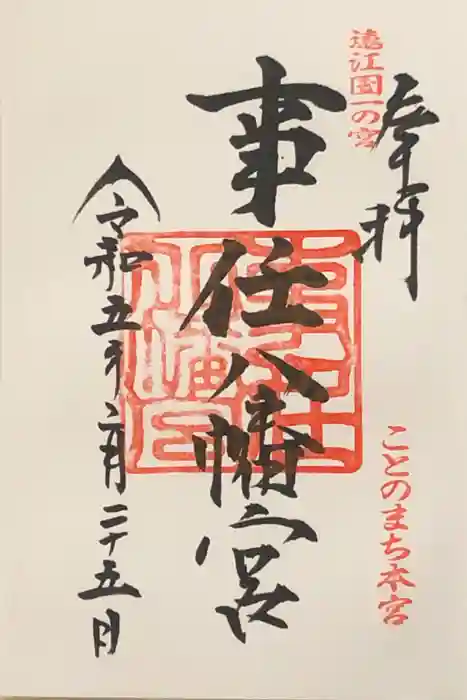 奉拝
遠江国一の宮
ことのまち本宮
事任八幡宮
令和五年六月二十五日